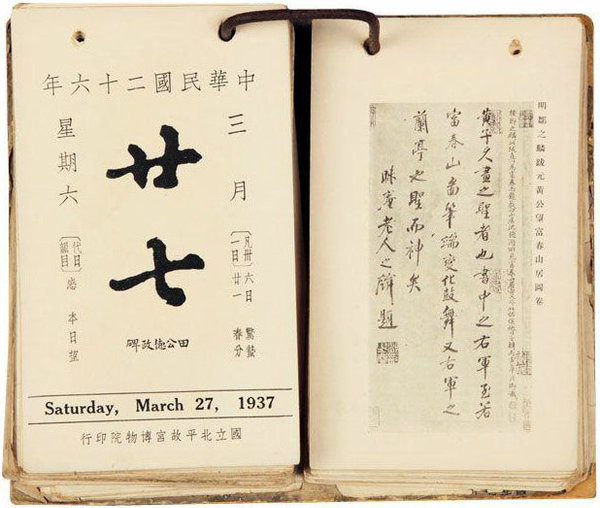 中華民國二十六年
三月
廿七
星期六
〔凡卅一日〕
六日驚蟄
廿一春分
〔代日韻目〕感 本日望
田公德政碑
Saturday, March 27, 1937
國立北平故宮博物院印行
明鄒之麟跋元黃公望富春山居圖卷
黃子久畫之聖者也書中之右軍至若
富春山圖筆端變化鼓舞又右軍之
蘭亭也聖而神矣
昧庵老人之麟題